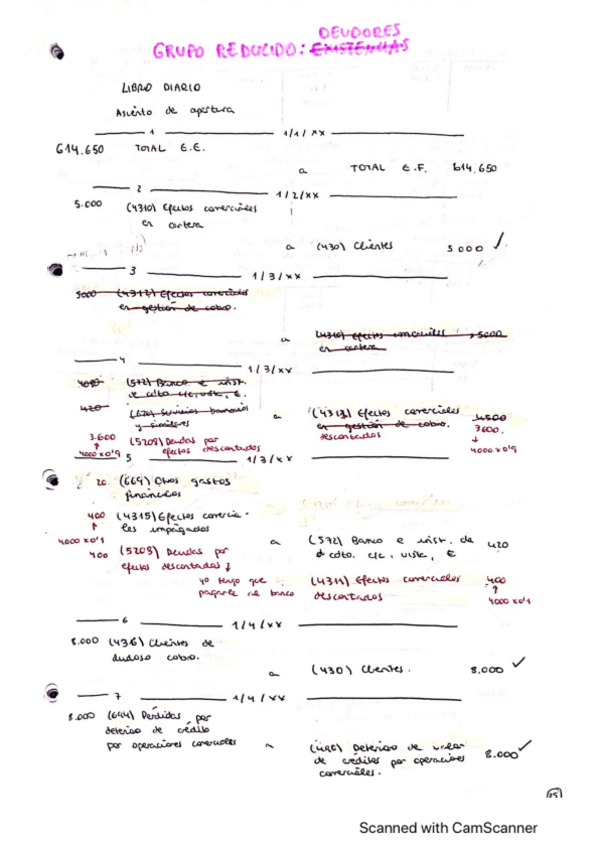 DEUDORES
GRUPO REDUCIDO: EXISTENCIAS
LIBRO DIARIO
Asiento de apertura
1 1/1/XX
614.650 TOTAL E.E.
a TOTAL E.F. 614.650
2 1/2/XX
5.000 (4310) Efectos comerciales
en cartera
a (430) Clientes 5000 ✓
3 1/3/XX
5000 (4312) Efectos comerciales
en gestión de cobro.
a (4310) efectos comerciales 5000
en cartera
4 1/3/XX
(572) Banco e inst.
de cdto. c/c, vista, €.
420 (626) Servicios bancarios
y similares
a (4311) Efectos comerciales 4500
en gestión de cobro.
descontados 3600.
↓
4000 x 0'9
3.600 (5208) Deudas por
↑ efectos descontados
4000 x 0'9
5 1/3/XX
20 (669) Otros gastos
financieros
400 (4315) Efectos comercia-
↑ les impagados
4000 x 0'1
400 (5208) Deudas por
efectos descontados ↓
yo tengo que
pagarle al banco
a (572) Banco e inst. de 420
cdto. c/c, vista, €
(4311) Efectos comerciales 400
descontados ↑
4000 x 0'1
6 1/4/XX
8.000 (436) Clientes de
dudoso cobro.
a (430) Clientes. 8.000 ✓
7 1/4/XX
8.000 (694) Pérdidas por
deterioro de crédito
por operaciones comerciales
a (490) Deterioro de valor
de créditos por operaciones 8.000 ✓
comerciales.
15
Scanned with CamScanner